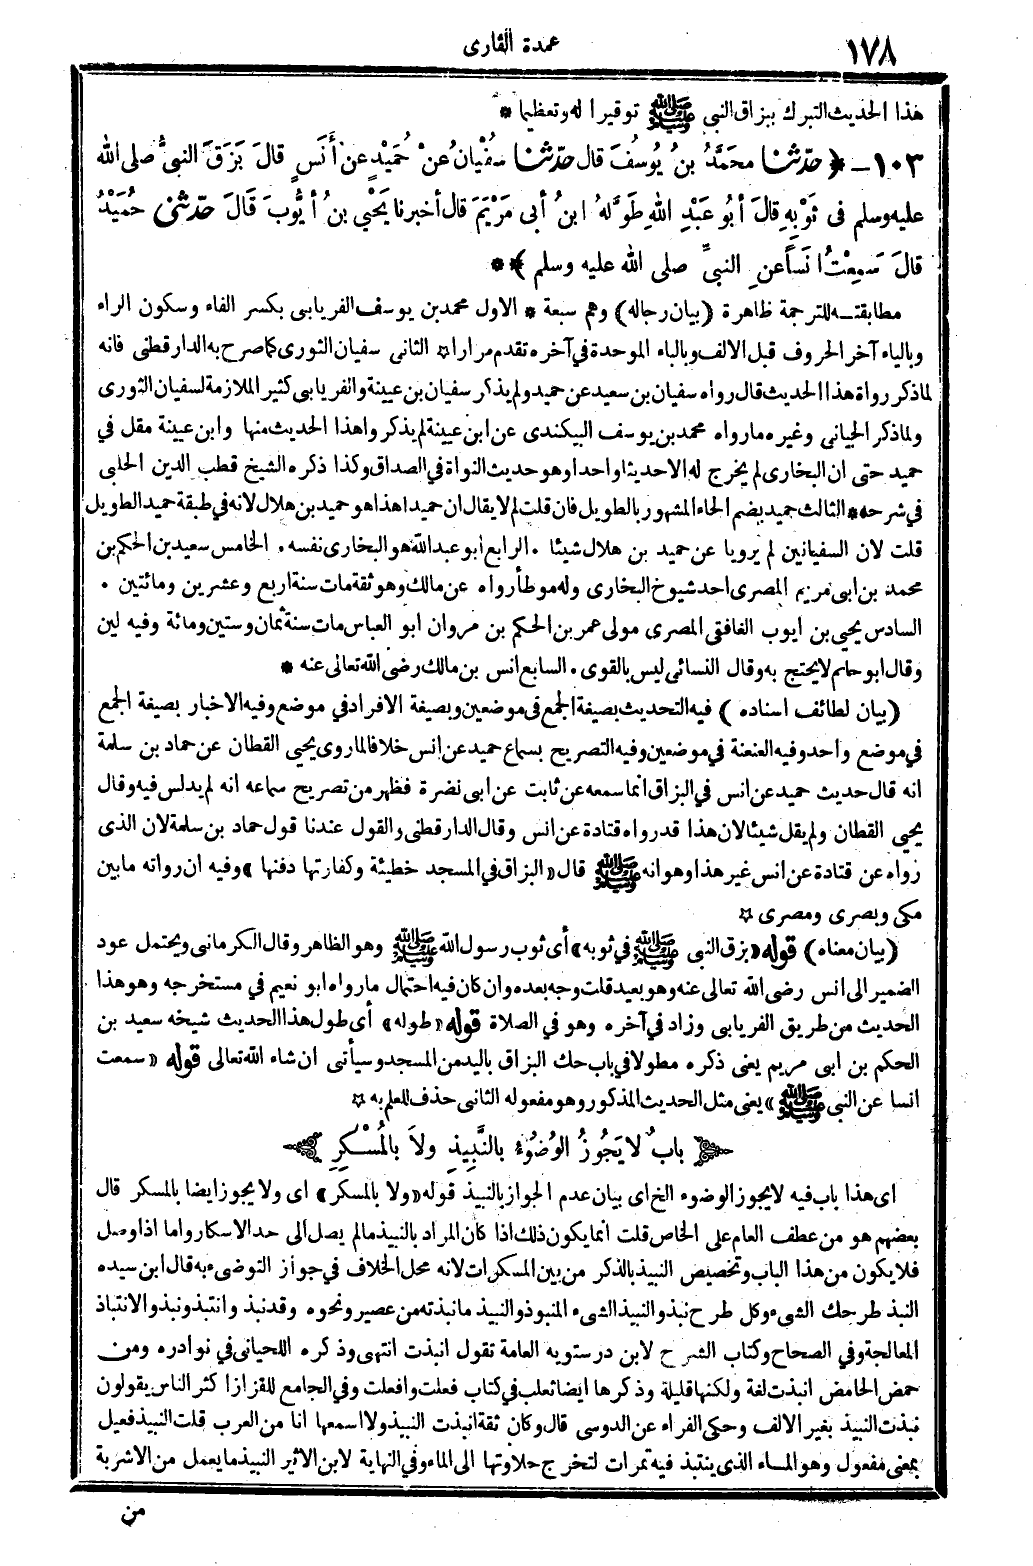 ١٧٨
عمدة القارى
هذا الحديث التبرك ببزاق النبى ﷺ توقيرا له وتعظيما *
١٠٣ـ ﴿ حدّثنا محَمَّدُ بنُ يُوسُفَ قال حدّثنا سفْيانُ عنْ حُمَيْدٍ عنْ أَنَسٍ قالَ بَزَقَ النبيُّ صلى الله
عليه وسلم فى ثَوْبِهِ قالَ أبُو عَبْدِ اللهِ طَوَّلهُ ابنُ أبى مَرْيَمَ قال أخبرنا يَحْيي بنُ أيُّوبَ قَالَ حدّثنى حُمَيْدٌ
قالَ سَمِعْتُ أنَساً عنِ النبيِّ صلى الله عليه وسلم ﴾ *
مطابقته للترجمة ظاهرة (بيان رجاله) وهم سبعة * الاول محمد بن يوسف الفريابى بكسر الفاء وسكون الراء
وبالياء آخر الحروف قبل الالف وبالباء الموحدة فى آخره تقدم مرارا ☆ الثانى سفيان الثورى كما صرح به الدارقطنى فانه
لما ذكر رواة هذا الحديث قال رواه سفيان بن سعيد عن حميد ولم يذكر سفيان بن عيينة والفريابى كثير الملازمة لسفيان الثورى
ولما ذكر الجيانى وغيره ما رواه محمد بن يوسف البيكندى عن ابن عيينة لم يذكروا هذا الحديث منها وابن عيينة مقل فى
حميد حتى ان البخارى لم يخرج له الا حديثا واحدا وهو حديث النواة فى الصداق وكذا ذكره الشيخ قطب الدين الحلبى
فى شرحه * الثالث حميد بضم الحاء المشهور بالطويل فان قلت لم لا يقال ان حميدا هذا هو حميد بن هلال لانه فى طبقة حميد الطويل
قلت لان السفيانين لم يرويا عن حميد بن هلال شيئا . الرابع ابو عبد الله هو البخارى نفسه . الخامس سعيد بن الحكم بن
محمد بن ابى مريم المصرى احد شيوخ البخارى وله موطأ رواه عن مالك وهو ثقة مات سنة اربع وعشرين ومائتين .
السادس يحيي بن ايوب الغافقى المصرى مولى عمر بن الحكم بن مروان ابو العباس مات سنة ثمان وستين ومائة وفيه لين
وقال ابو حاتم لا يحتج به وقال النسائى ليس بالقوى . السابع انس بن مالك رضى الله تعالى عنه *
(بيان لطائف اسناده ) فيه التحديث بصيغة الجمع فى موضعين وبصيغة الافراد فى موضع وفيه الاخبار بصيغة الجمع
فى موضع واحد وفيه العنعنة فى موضعين وفيه التصريح بسماع حميد عن انس خلافا لما روى يحيي القطان عن حماد بن سلمة
انه قال حديث حميد عن انس فى البزاق انما سمعه عن ثابت عن ابى نضرة فظهر من تصريح سماعه انه لم يدلس فيه وقال
يحيي القطان ولم يقل شيئا لان هذا قد رواه قتادة عن انس وقال الدارقطنى والقول عندنا قول حماد بن سلمة لان الذى
رواه عن قتادة عن انس غير هذا وهو انه ﷺ قال «البزاق فى المسجد خطيئة وكفارتها دفنها » وفيه ان رواته مابين
مكى وبصرى ومصرى ☆
(بيان معناه ) قوله «بزق النبى ﷺ فى ثوبه» أى ثوب رسول الله ﷺ وهو الظاهر وقال الكرمانى ويحتمل عود
الضمير الى انس رضى الله تعالى عنه وهو بعيد قلت وجه بعده وان كان فيه احتمال ما رواه ابو نعيم فى مستخرجه وهو هذا
الحديث من طريق الفريابى وزاد فى آخره وهو فى الصلاة قوله «طوله» أى طول هذا الحديث شيخه سعيد بن
الحكم بن ابى مريم يعنى ذكره مطولا فى باب حك البزاق باليد من المسجد وسيأتى ان شاء الله تعالى قوله «سمعت
انسا عن النبى ﷺ» يعنى مثل الحديث المذكور وهو مفعوله الثانى حذف للعلم به ☆
باب لا يَجُوزُ الوُضُوءُ بالنَّبِيذِ ولاَ بالمُسْكِرِ
اى هذا باب فيه لا يجوز الوضوء الخ اى بيان عدم الجواز بالنبيذ قوله «ولا بالمسكر» اى ولا يجوز ايضا بالمسكر قال
بعضهم هو من عطف العام على الخاص قلت انما يكون ذلك اذا كان المراد بالنبيذ مالم يصل الى حد الاسكار واما اذا وصل
فلا يكون من هذا الباب وتخصيص النبيذ بالذكر من بين المسكرات لانه محل الخلاف فى جواز التوضىء به قال ابن سيده
النبذ طرحك الشىء وكل طرح نبذ والنبيذ الشىء المنبوذ والنبيذ ما نبذته من عصير ونحوه وقد نبذ وانتبذ ونبذ والانتباذ
المعالجة وفى الصحاح وكتاب الشرح لابن درستويه العامة تقول انبذت انتهى وذكره اللحيانى فى نوادره ومن
حمض الحامض انبذت لغة ولكنها قليلة وذكرها ايضا ثعلب فى كتاب فعلت وافعلت وفى الجامع للقزاز اكثر الناس يقولون
نبذت النبيذ بغير الالف وحكى الفراء عن الدوسى قال وكان ثقة انبذت النبيذ ولا اسمعها انا من العرب قلت النبيذ فعيل
بمعنى مفعول وهو الماء الذى ينتبذ فيه تمرات لتخرج حلاوتها الى الماء وفى النهاية لابن الاثير النبيذ ما يعمل من الاشربة
من